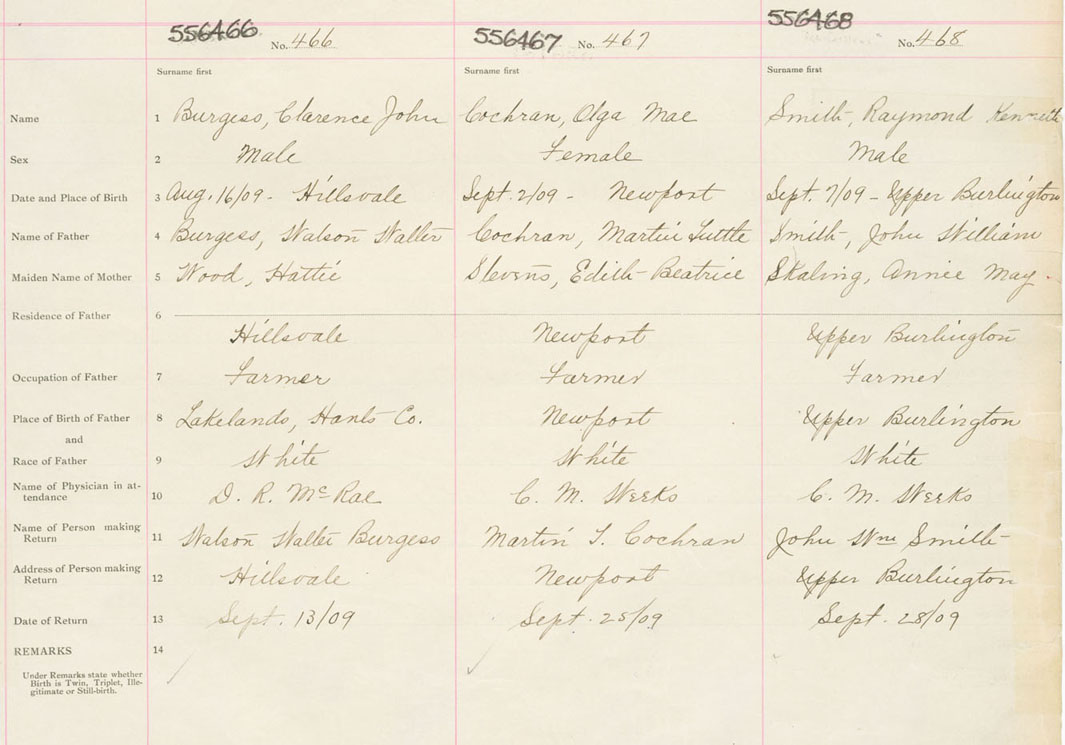 556466 No. 466 556467 No. 467 556468 No. 468
Surname first Surname first Surname first
Name 1 Burgess, Clarence John Cochran, Olga Mae Smith, Raymond Kenneth
Sex 2 Male Female Male
Date and Place of Birth 3 Aug. 16/09 - Hillsvale Sept. 2/09 - Newport Sept. 7/09 - Upper Burlington
Name of Father 4 Burgess, Watson Walter Cochran, Martin Tuttle Smith, John William
Maiden Name of Mother 5 Wood, Hattie Stevens, Edith Beatrice Skaling, Annie May
Residence of Father 6
Hillsvale Newport Upper Burlington
Occupation of Father 7 Farmer Farmer Farmer
Place of Birth of Father 8 Lakelands, Hants Co. Newport Upper Burlington
and
Race of Father 9 White White White
Name of Physician in at-
tendance 10 D. R. McRae C. M. Weeks C. M. Weeks
Name of Person making
Return 11 Watson Walter Burgess Martin T. Cochran John Wm Smith
Address of Person making
Return 12 Hillsvale Newport Upper Burlington
Date of Return 13 Sept. 13/09 Sept. 25/09 Sept. 28/09
REMARKS 14
Under Remarks state whether
Birth is Twin, Triplet, Ille-
gitimate or Still-birth.